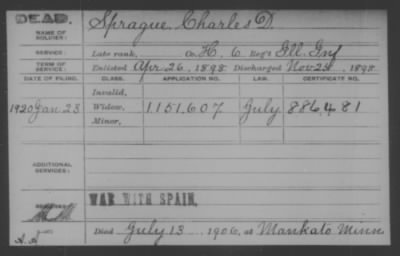 DEAD.
NAME OF SOLDIER: Sprague, Charles D.
SERVICE: Late rank, Co. H, 6 Reg't Ill. Inf
TERM OF SERVICE: Enlisted Apr 26, 1898 Discharged Nov 25, 1898
DATE OF FILING. CLASS. APPLICATION NO. LAW. CERTIFICATE NO.
Invalid,
1920 Jan 23 Widow, 1,151,607 July 886,481
Minor,
ADDITIONAL SERVICES:
WAR WITH SPAIN.
Died July 13 1906, at Mankato Minn